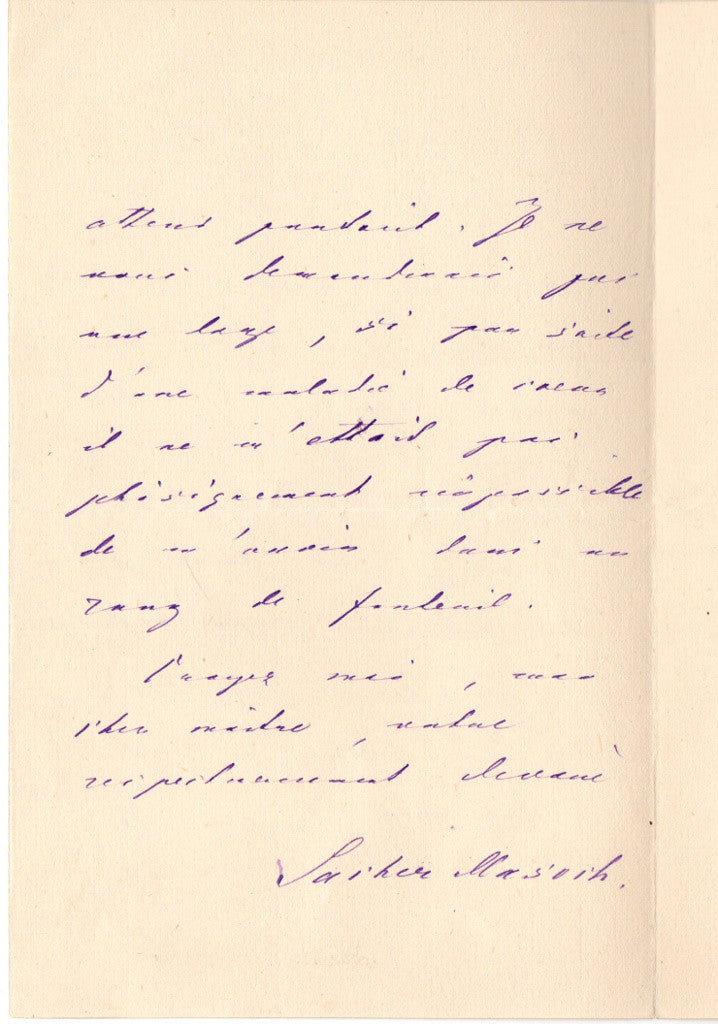 attend partout. Je ne
vous demanderais pas
une loge, si par suite
d'une maladie de coeur
il ne m'ettait pas
phisiquement impossible
de m'assoir dans un
rang de fauteuil.
Croyez moi, mon
cher maitre, votre
respectueusement devoué
Sacher Masoch.